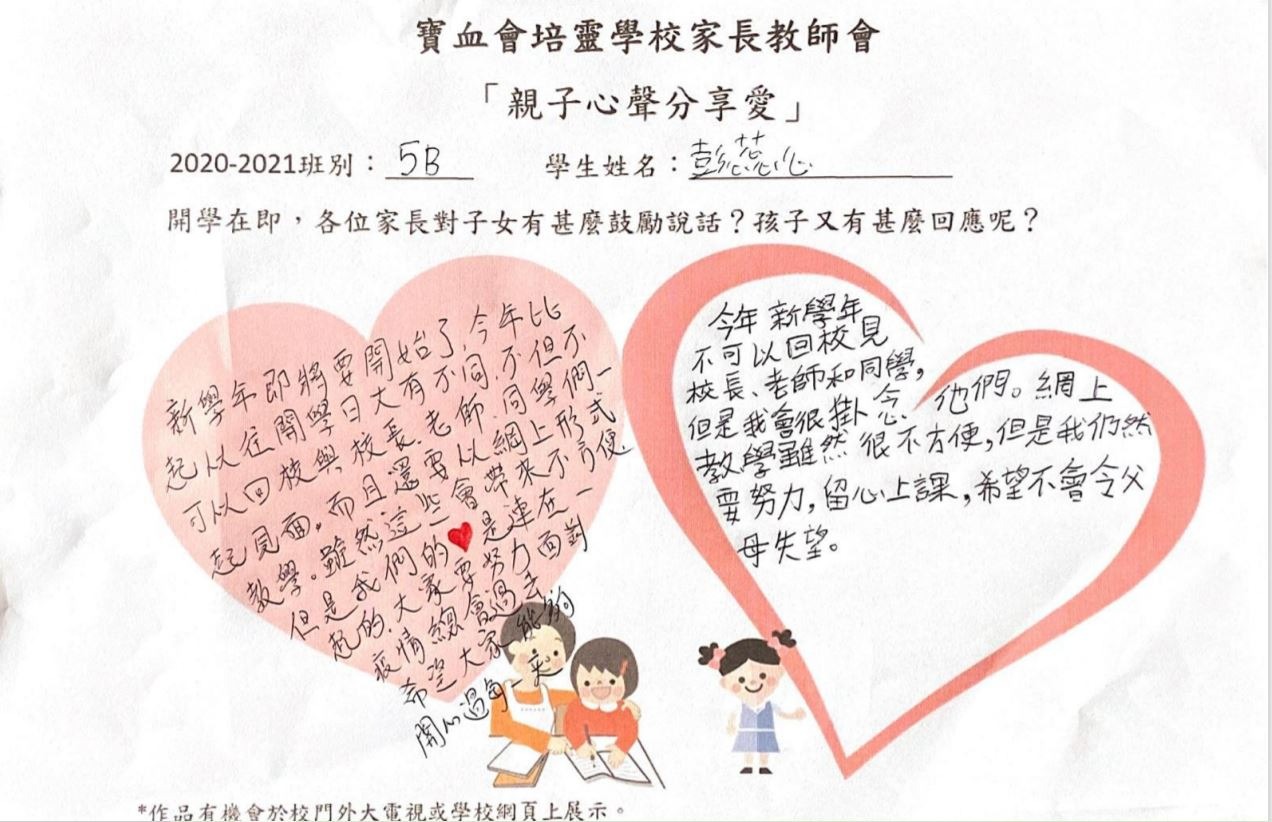 寶血會培靈學校家長教師會
「親子心聲分享愛」
2020-2021班別：5B 學生姓名：彭蕊心
開學在即，各位家長對子女有甚麼鼓勵說話？孩子又有甚麼回應呢？
新學年即將要開始了,今年比
起以往開學日大有不同,不但不
可以回校與校長.老師.同學們一
起見面。而且還要以網上形式
教學。雖然這些會帶來不方便.
但是我們的❤是連在一
起的.大家要努力面對
疫情總會過去
希望大家能夠
開心過每一天
今年新學年
不可以回校見
校長、老師和同學,
但是我會很掛念他們。網上
教學雖然很不方便,但是我仍然
要努力,留心上課,希望不會令父
母失望。
*作品有機會於校門外大電視或學校網頁上展示。